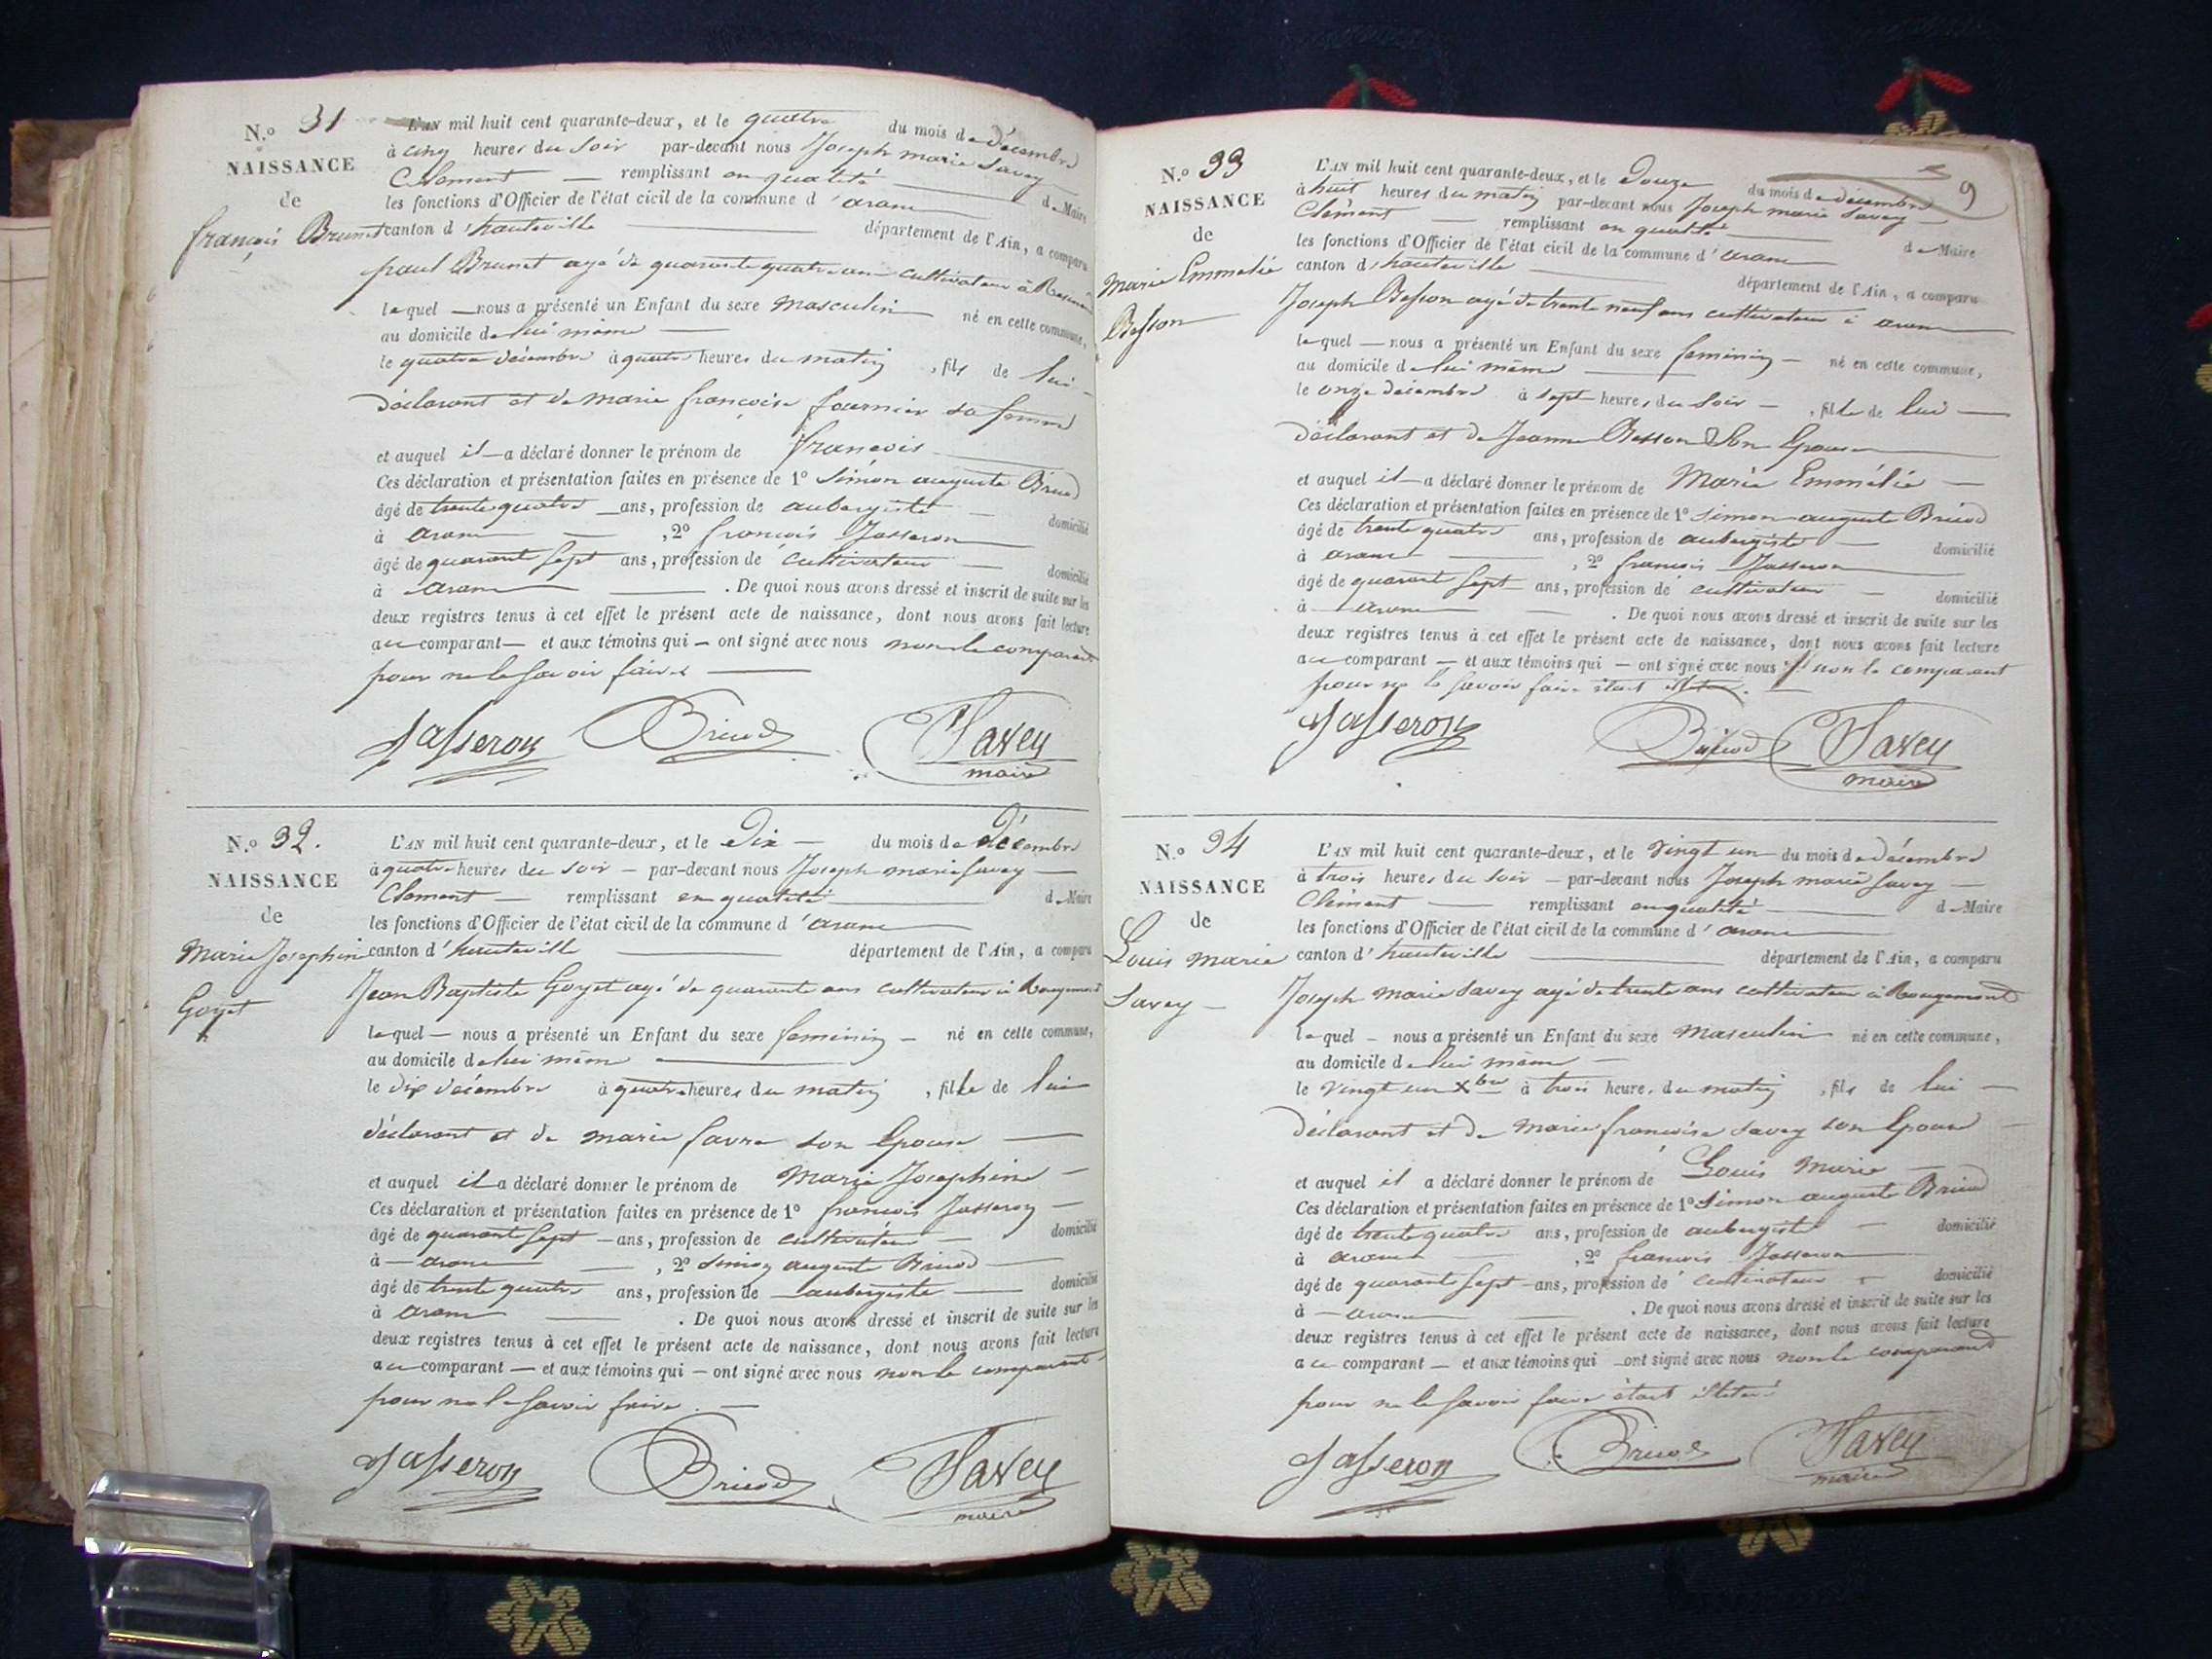 N.º 31
NAISSANCE
de
françois Brunet
L'AN mil huit cent quarante-deux, et le quatre du mois de décembre
à cinq heures du soir par-devant nous Joseph marie Savey
Clément remplissant en qualité de Maire
les fonctions d'Officier de l'état civil de la commune d'aranc
canton d'hauteville département de l'Ain, a comparu
paul Brunet agé de quarante quatre ans cultivateur à
lequel nous a présenté un Enfant du sexe Masculin né en cette commune,
au domicile de lui même
le quatre décembre à quatre heures du matin, fils de lui
déclarant et de marie françoise fournier sa femme
et auquel il a déclaré donner le prénom de françois
Ces déclaration et présentation faites en présence de 1º Simon auguste Bricod
âgé de trente quatre ans, profession de aubergiste domicilié
à aranc, 2º françois Jasseron
âgé de quarante sept ans, profession de cultivateur domicilié
à aranc. De quoi nous avons dressé et inscrit de suite sur les
deux registres tenus à cet effet le présent acte de naissance, dont nous avons fait lecture
au comparant et aux témoins qui ont signé avec nous non le comparant
pour ne le savoir faire
Jasseron Bricod Savey
maire
N.º 32.
NAISSANCE
de
Marie Josephine
Goyet
L'AN mil huit cent quarante-deux, et le Dix du mois de Décembre
à quatre heures du soir par-devant nous Joseph marie Savey
Clément remplissant en qualité de Maire
les fonctions d'Officier de l'état civil de la commune d'aranc
canton d'hauteville département de l'Ain, a comparu
Jean Baptiste Goyet agé de quarante ans cultivateur à Rougemont
lequel nous a présenté un Enfant du sexe feminin né en cette commune,
au domicile de lui même
le dix décembre à quatre heures du matin, fille de lui
déclarant et de marie favre son Epouse
et auquel il a déclaré donner le prénom de Marie Josephine
Ces déclaration et présentation faites en présence de 1º françois Jasseron
âgé de quarante sept ans, profession de cultivateur domicilié
à aranc, 2º Simon auguste Bricod
âgé de trente quatre ans, profession de aubergiste domicilié
à aranc. De quoi nous avons dressé et inscrit de suite sur les
deux registres tenus à cet effet le présent acte de naissance, dont nous avons fait lecture
au comparant et aux témoins qui ont signé avec nous non le comparant
pour ne le savoir faire.
Jasseron Bricod Savey
maire
9
N.º 33
NAISSANCE
de
Marie Emmélie
Besson
L'AN mil huit cent quarante-deux, et le Douze du mois de décembre
à huit heures du matin par-devant nous Joseph marie Savey
Clément remplissant en qualité de Maire
les fonctions d'Officier de l'état civil de la commune d'aranc
canton d'hauteville département de l'Ain, a comparu
Joseph Besson agé de trente neuf ans cultivateur à aranc
lequel nous a présenté un Enfant du sexe feminin né en cette commune,
au domicile de lui même
le onze décembre à sept heures du soir, fille de lui
déclarant et de Jeanne Besson Son Epouse
et auquel il a déclaré donner le prénom de Marie Emmélie
Ces déclaration et présentation faites en présence de 1º Simon auguste Bricod
âgé de trente quatre ans, profession de aubergiste domicilié
à aranc, 2º françois Jasseron
âgé de quarante sept ans, profession de cultivateur domicilié
à aranc. De quoi nous avons dressé et inscrit de suite sur les
deux registres tenus à cet effet le présent acte de naissance, dont nous avons fait lecture
au comparant et aux témoins qui ont signé avec nous non le comparant
pour ne le savoir faire étant
Jasseron Bricod Savey
maire
N.º 34
NAISSANCE
de
Louis Marie
Savey
L'AN mil huit cent quarante-deux, et le Vingt un du mois de décembre
à trois heures du soir par-devant nous Joseph marie Savey
Clément remplissant en qualité de Maire
les fonctions d'Officier de l'état civil de la commune d'aranc
canton d'hauteville département de l'Ain, a comparu
Joseph Marie Savey agé de trente ans cultivateur à Rougemont
lequel nous a présenté un Enfant du sexe Masculin né en cette commune,
au domicile de lui même
le Vingt un Xbre à trois heures du matin, fils de lui
déclarant et de Marie françoise Savey son Epouse
et auquel il a déclaré donner le prénom de Louis Marie
Ces déclaration et présentation faites en présence de 1º Simon auguste Bricod
âgé de trente quatre ans, profession de aubergiste domicilié
à aranc, 2º françois Jasseron
âgé de quarante sept ans, profession de cultivateur domicilié
à aranc. De quoi nous avons dressé et inscrit de suite sur les
deux registres tenus à cet effet le présent acte de naissance, dont nous avons fait lecture
au comparant et aux témoins qui ont signé avec nous non le comparant
pour ne le savoir faire étant illetéré
Jasseron Bricod Savey
maire